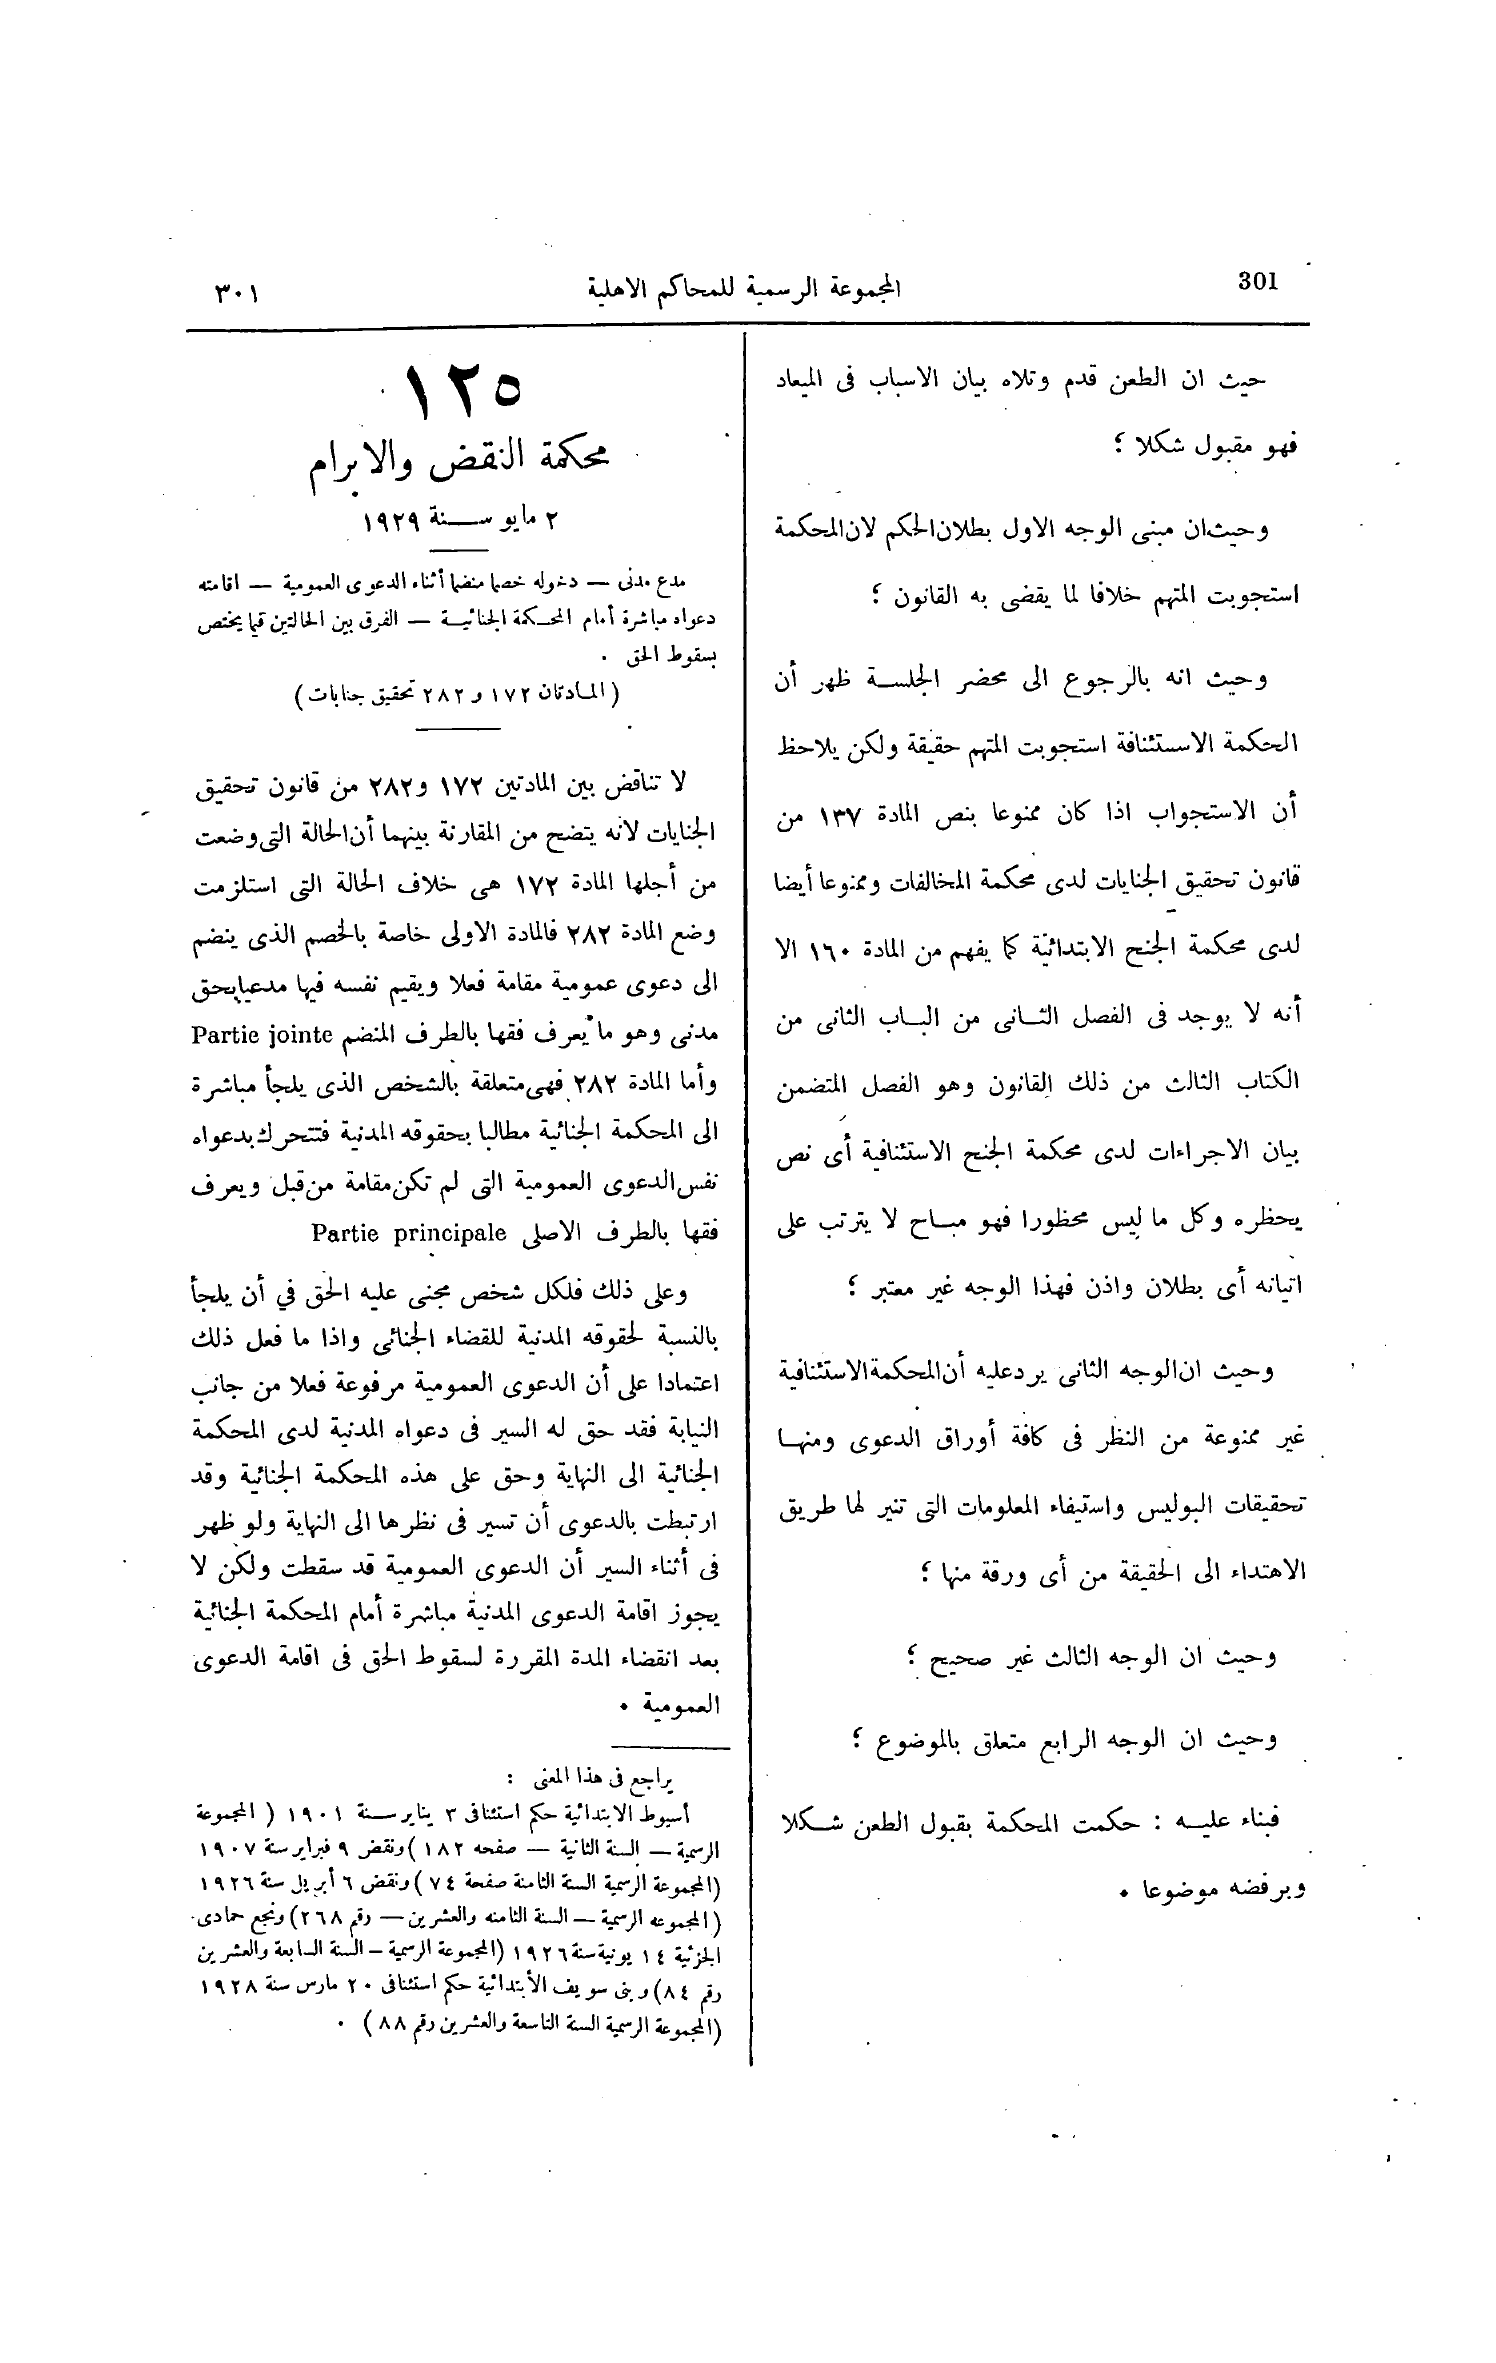 301
المجموعة الرسمية للمحاكم الاهلية
٣٠١
حيث ان الطعن قدم وتلاه بيان الاسباب فى الميعاد
فهو مقبول شكلا ؛
وحيث ان مبنى الوجه الاول بطلان الحكم لان المحكمة
استجوبت المتهم خلافا لما يقضى به القانون ؛
وحيث انه بالرجوع الى محضر الجلسة ظهر أن
المحكمة الاستئنافة استجوبت المتهم حقيقة ولكن يلاحظ
أن الاستجواب اذا كان ممنوعا بنص المادة ١٣٧ من
قانون تحقيق الجنايات لدى محكمة المخالفات وممنوعا أيضا
لدى محكمة الجنح الابتدائية كما يفهم من المادة ١٦٠ الا
أنه لا يوجد فى الفصل الثانى من الباب الثانى من
الكتاب الثالث من ذلك القانون وهو الفصل المتضمن
بيان الاجراءات لدى محكمة الجنح الاستئنافية أى نص
يحظره وكل ما ليس محظورا فهو مباح لا يترتب على
اتيانه أى بطلان واذن فهذا الوجه غير معتبر ؛
وحيث ان الوجه الثانى يرد عليه أن المحكمة الاستئنافية
غير ممنوعة من النظر فى كافة أوراق الدعوى ومنها
تحقيقات البوليس واستيفاء المعلومات التى تنير لها طريق
الاهتداء الى الحقيقة من أى ورقة منها ؛
وحيث ان الوجه الثالث غير صحيح ؛
وحيث ان الوجه الرابع متعلق بالموضوع ؛
فبناء عليه : حكمت المحكمة بقبول الطعن شكلا
وبرفضه موضوعا .
١٢٥
محكمة النقض والابرام
٢ مايو سنة ١٩٢٩
مدع مدنى — دخوله خصما منضما أثناء الدعوى العمومية — اقامته
دعواه مباشرة أمام المحكمة الجنائية — الفرق بين الحالتين فيما يختص
بسقوط الحق .
(المادتان ١٧٢ و ٢٨٢ تحقيق جنايات)
لا تناقض بين المادتين ١٧٢ و٢٨٢ من قانون تحقيق
الجنايات لانه يتضح من المقارنة بينهما أن الحالة التى وضعت
من أجلها المادة ١٧٢ هى خلاف الحالة التى استلزمت
وضع المادة ٢٨٢ فالمادة الاولى خاصة بالخصم الذى ينضم
الى دعوى عمومية مقامة فعلا ويقيم نفسه فيها مدعيا بحق
مدنى وهو ما يعرف فقها بالطرف المنضم Partie jointe
وأما المادة ٢٨٢ فهى متعلقة بالشخص الذى يلجأ مباشرة
الى المحكمة الجنائية مطالبا بحقوقه المدنية فتتحرك بدعواه
نفس الدعوى العمومية التى لم تكن مقامة من قبل ويعرف
فقها بالطرف الاصلى Partie principale
وعلى ذلك فلكل شخص مجنى عليه الحق في أن يلجأ
بالنسبة لحقوقه المدنية للقضاء الجنائى واذا ما فعل ذلك
اعتمادا على أن الدعوى العمومية مرفوعة فعلا من جانب
النيابة فقد حق له السير فى دعواه المدنية لدى المحكمة
الجنائية الى النهاية وحق على هذه المحكمة الجنائية وقد
ارتبطت بالدعوى أن تسير فى نظرها الى النهاية ولو ظهر
فى أثناء السير أن الدعوى العمومية قد سقطت ولكن لا
يجوز اقامة الدعوى المدنية مباشرة أمام المحكمة الجنائية
بعد انقضاء المدة المقررة لسقوط الحق فى اقامة الدعوى
العمومية .
يراجع فى هذا المعنى :
أسيوط الابتدائية حكم استئنافى ٣ يناير سنة ١٩٠١ (المجموعة
الرسمية — السنة الثانية — صفحه ١٨٢) ونقض ٩ فبراير سنة ١٩٠٧
(المجموعة الرسمية السنة الثامنة صفحة ٧٤) ونقض ٦ أبريل سنة ١٩٢٦
(المجموعه الرسمية — السنة الثامنه والعشرين — رقم ٢٦٨) ونجع حمادى
الجزئية ١٤ يونية سنة ١٩٢٦ (المجموعة الرسمية — السنة السابعة والعشرين
رقم ٨٤) وبنى سويف الأبتدائية حكم استئنافى ٢٠ مارس سنة ١٩٢٨
(المجموعة الرسمية السنة التاسعة والعشرين رقم ٨٨) .